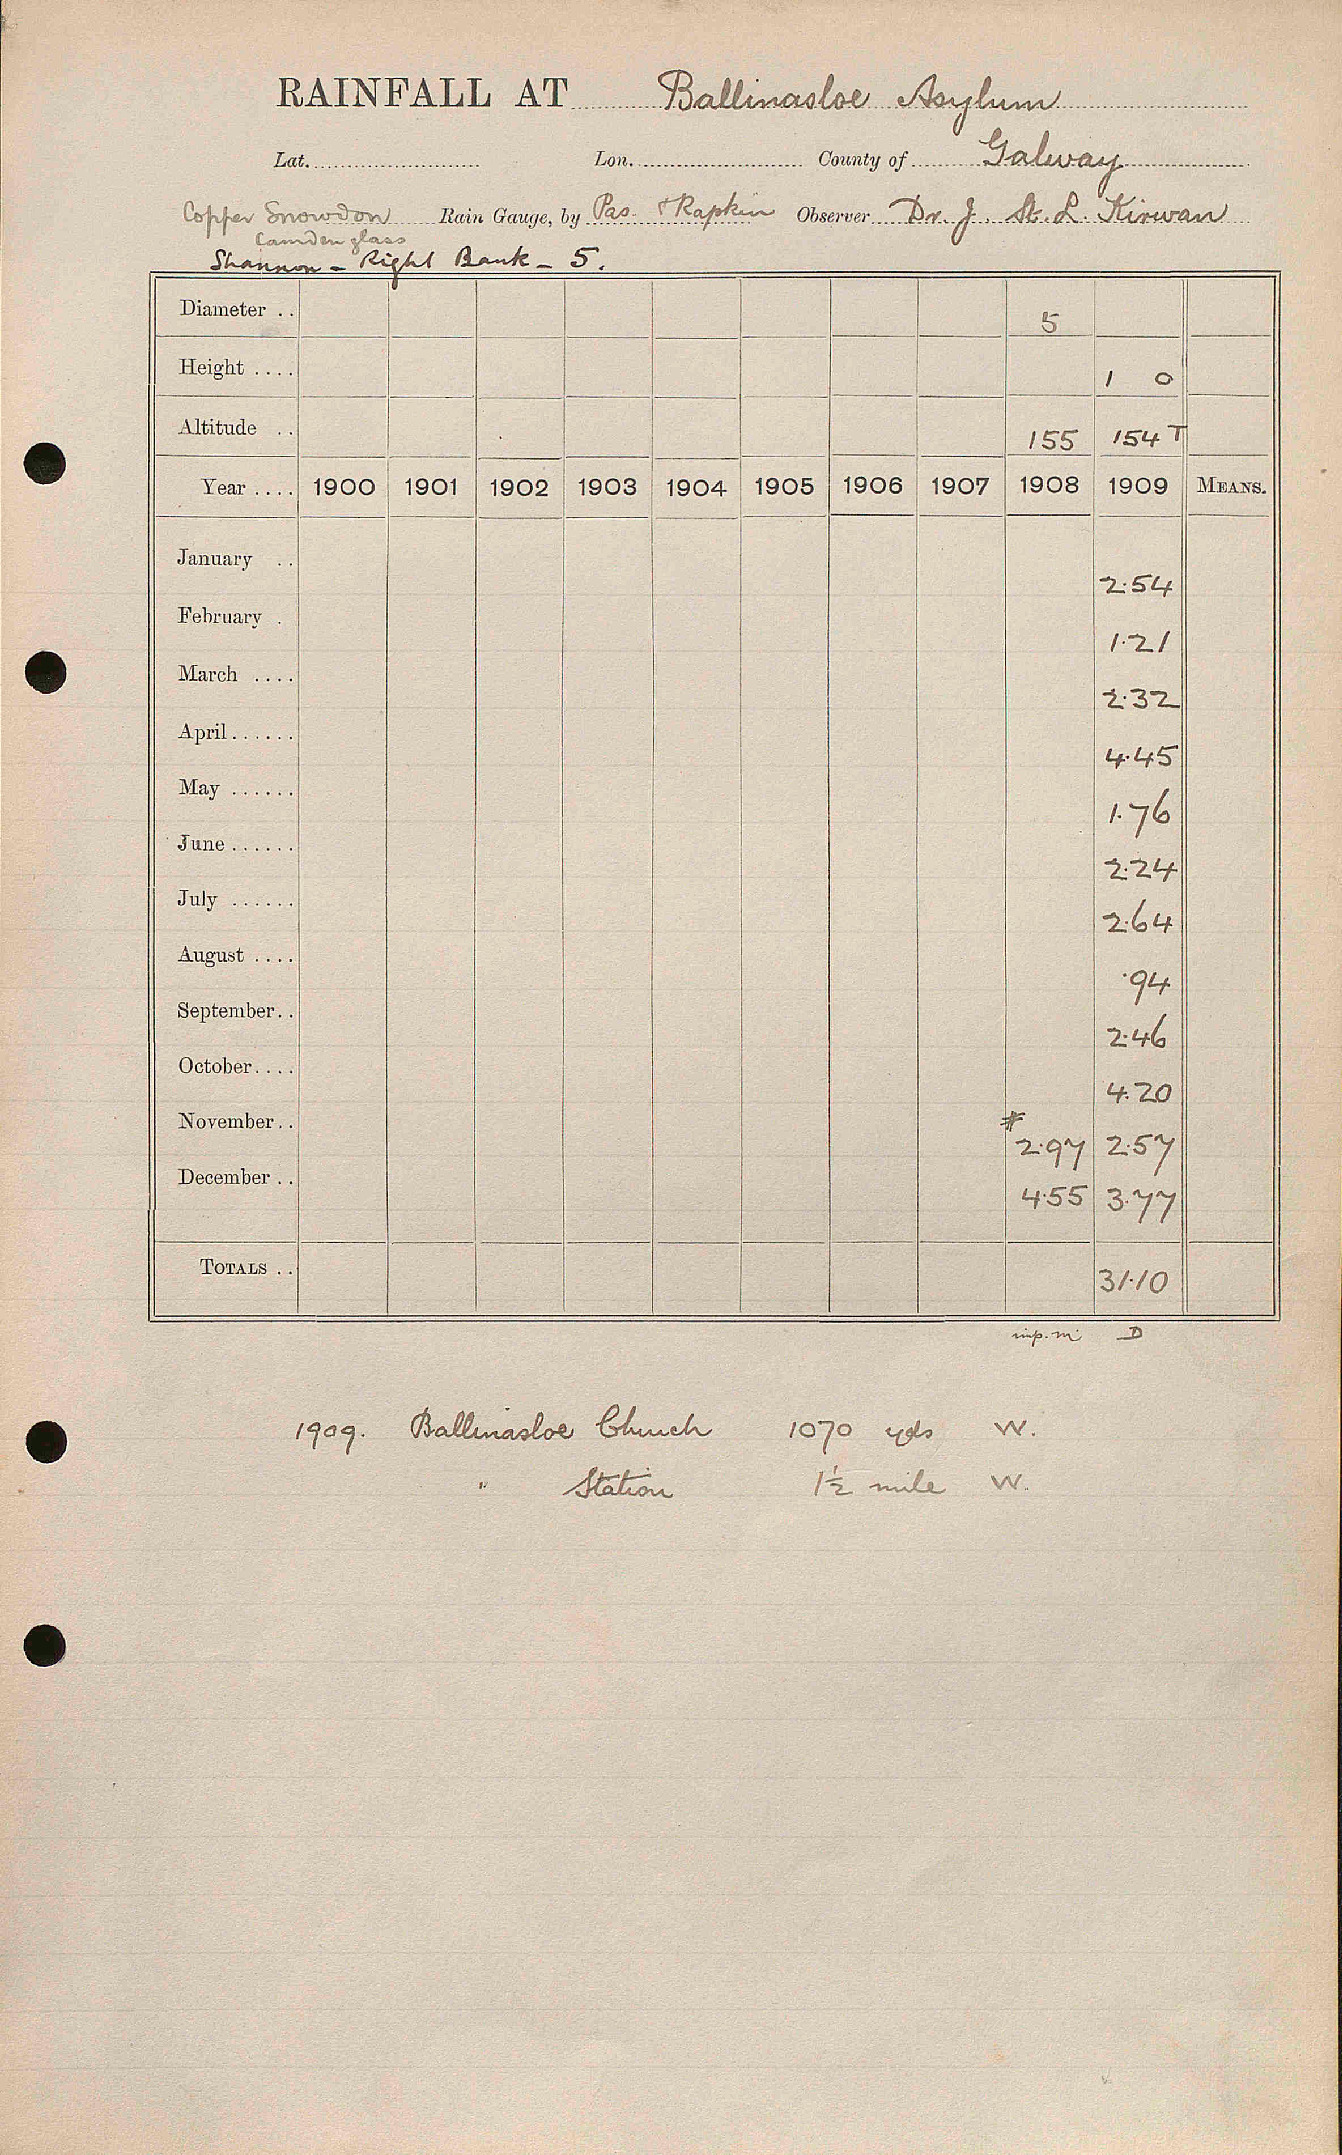 RAINFALL AT Ballinasloe Asylum
Lat. Lon. County of Galway
Copper Snowdon Rain Gauge, by Pas. & Rapkin Observer Dr. J. St. L. Kirwan
Camden glass
Shannon - Right Bank - 5.
Diameter .. 5
Height .... 1 0
Altitude .. 155 154 T
Year .... 1900 1901 1902 1903 1904 1905 1906 1907 1908 1909 MEANS.
January .. 2.54
February . 1.21
March .... 2.32
April ...... 4.45
May ...... 1.76
June ...... 2.24
July ...... 2.64
August .... .94
September .. 2.46
October .... 4.20
November .. # 2.97 2.57
December .. 4.55 3.77
TOTALS .. 31.10
imp. m. D
1909. Ballinasloe Church 1070 yds W.
" Station 1½ mile W.